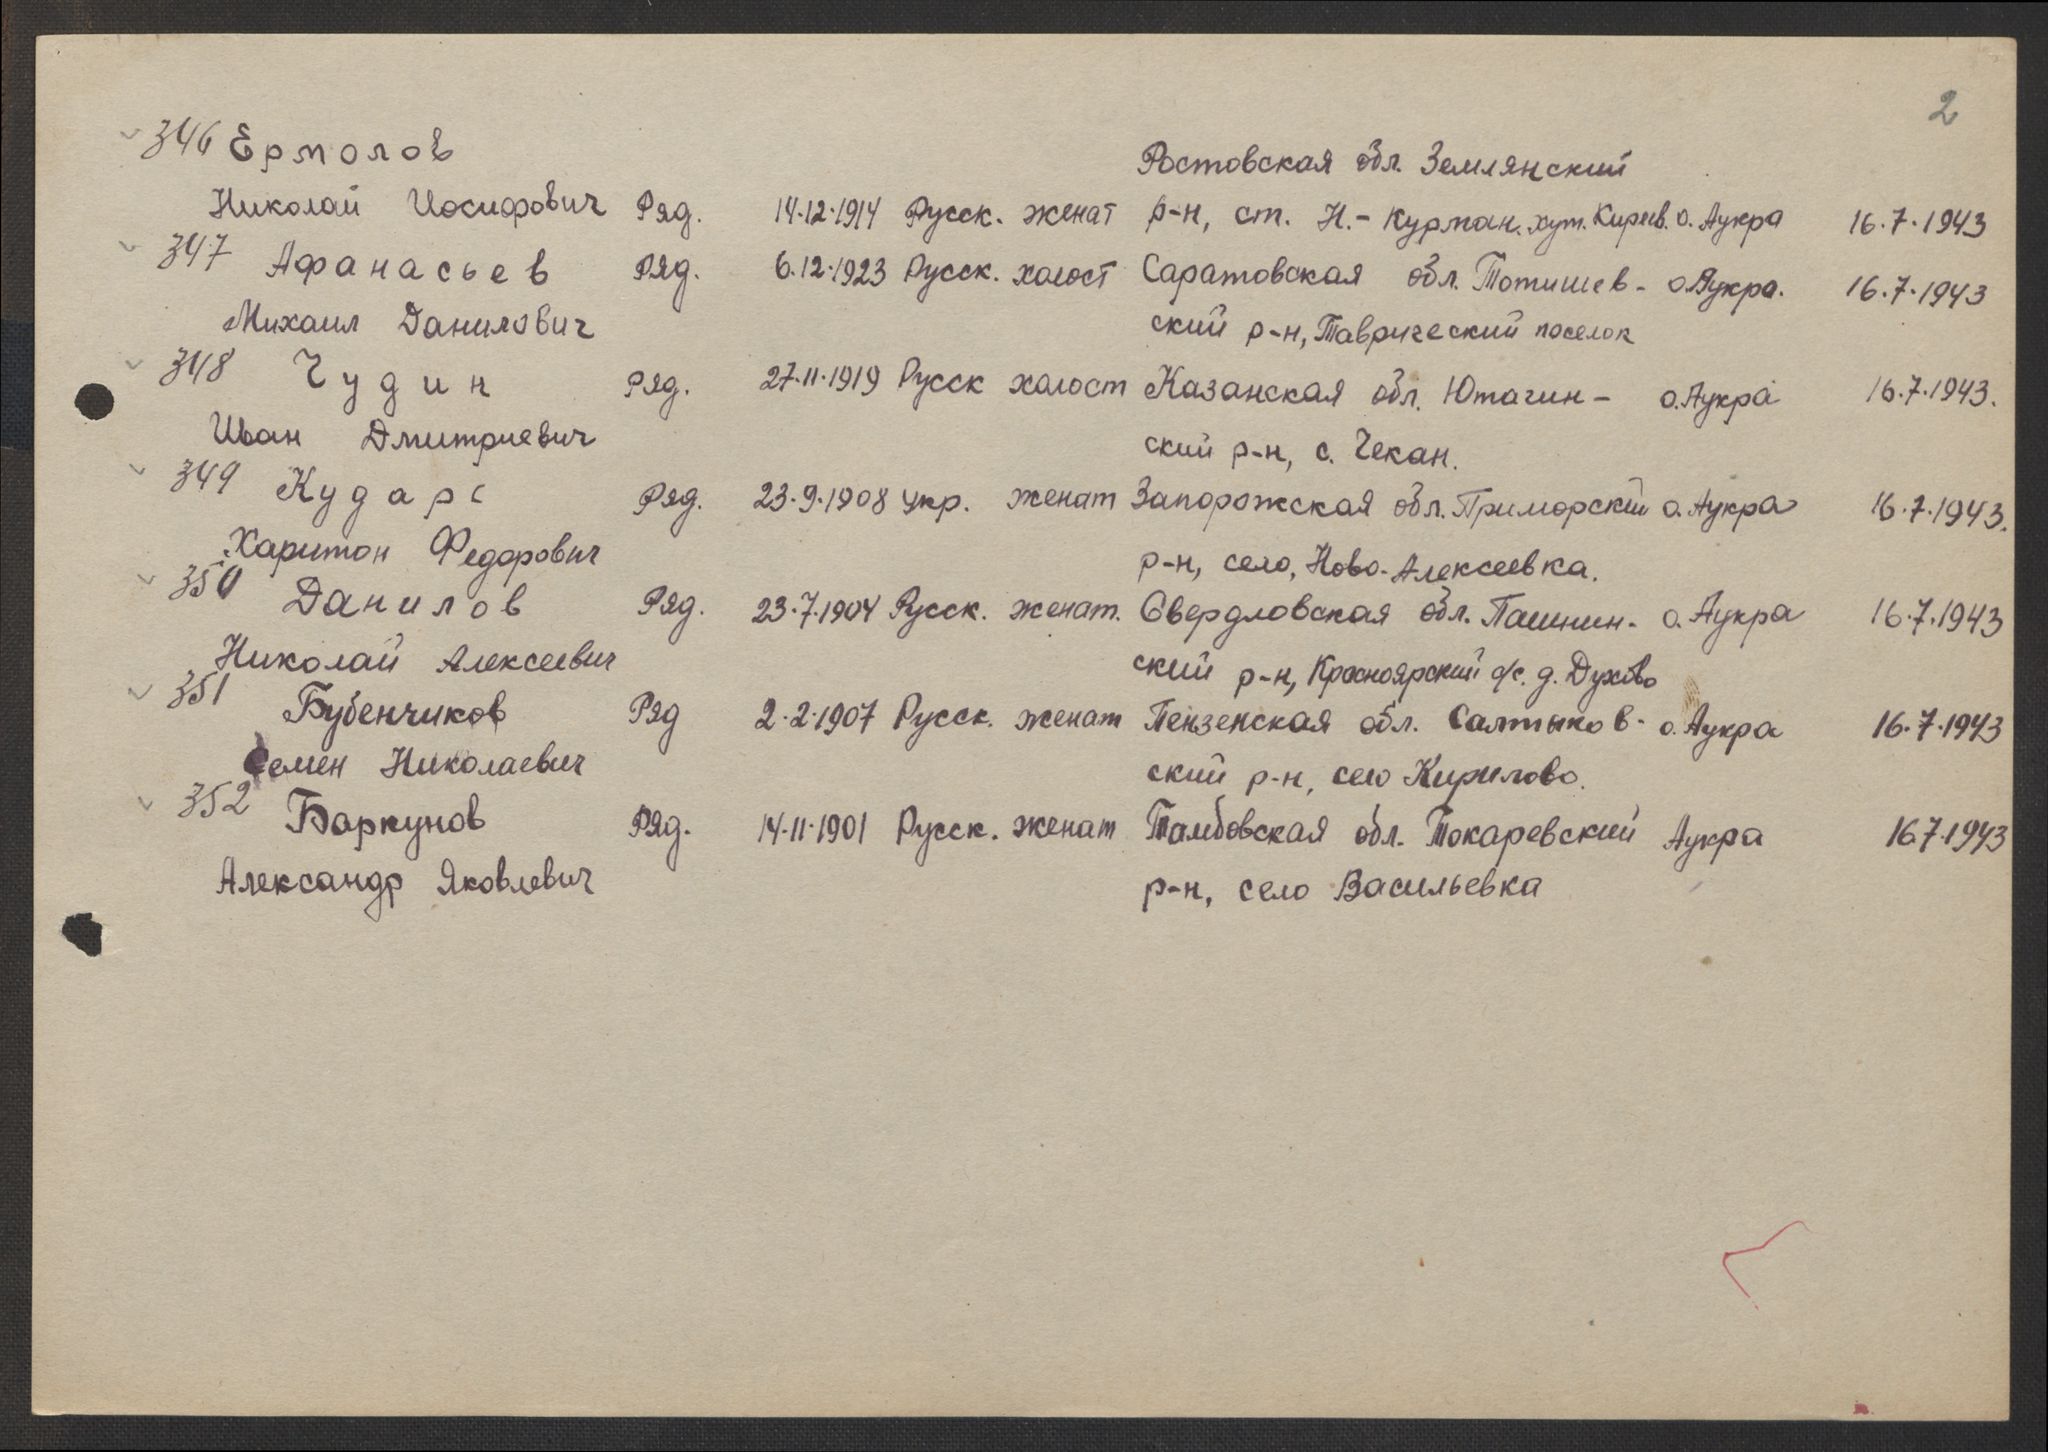 2
346 Ермолов Ростовская обл. Землянский
Николай Иосифович Ряд. 14.12.1914 Русск. женат р-н, ст. Н.-Курман. хут. Киреев. о. Аукра 16.7.1943
347 Афанасьев Ряд. 6.12.1923 Русск. холост Саратовская обл. Тотишев- о.Аукра. 16.7.1943
Михаил Данилович ский р-н, Таврический поселок
348 Чудин Ряд. 27.11.1919 Русск холост Казанская обл. Ютагин- о.Аукра 16.7.1943.
Иван Дмитриевич ский р-н, с. Чекан.
349 Кударь Ряд. 23.9.1908 Укр. женат Запорожская обл. Приморский о. Аукра 16.7.1943.
Харитон Федорович р-н, село, Ново-Алексеевка.
350 Данилов Ряд. 23.7.1904 Русск. женат. Свердловская обл. Пашнин- о. Аукра 16.7.1943
Николай Алексеевич ский р-н, Красноярский с/с. д. Духово
351 Бубенчиков Ряд 2.2.1907 Русск. женат Пензенская обл. Салтыков- о. Аукра 16.7.1943
Семен Николаевич ский р-н, село Кирилово.
352 Баркунов Ряд. 14.11.1901 Русск. женат Тамбовская обл. Токаревский Аукра 16.7.1943
Александр Яковлевич р-н, село Васильевка